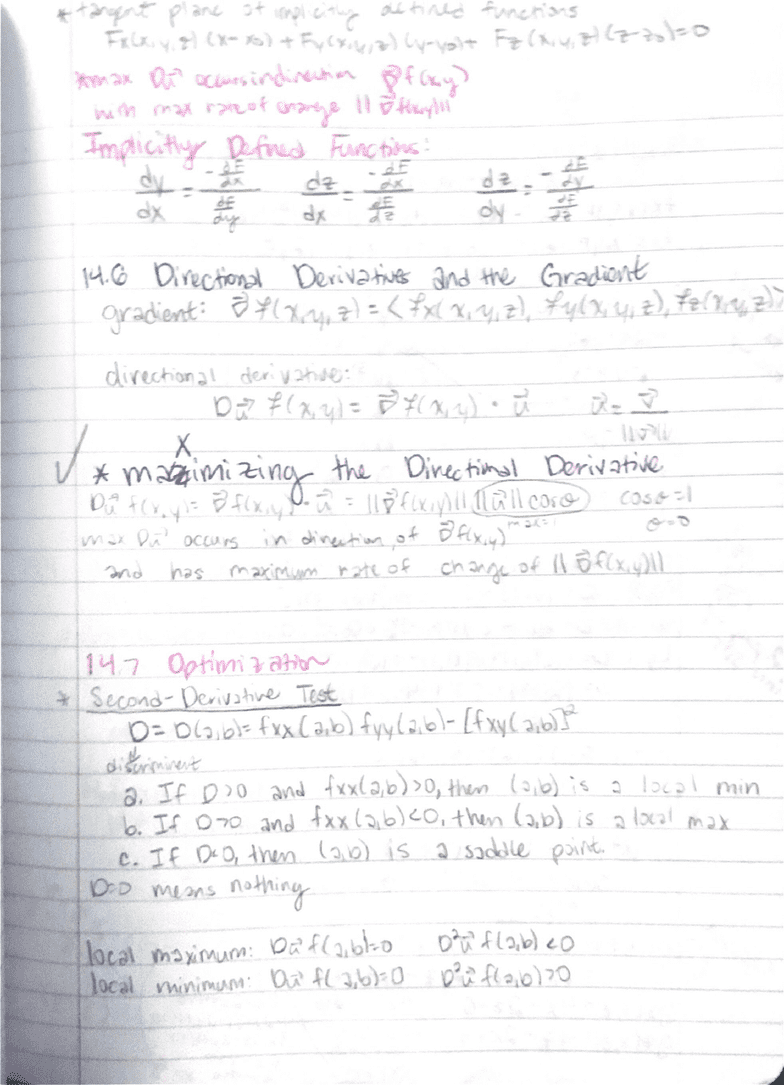 * tangent plane of implicitly defined functions
Fx(x,y,z)(x-x₀) + Fy(x,y,z)(y-y₀) + Fz(x,y,z)(z-z₀)=0
*max Dū occurs in direction ∇⃗f(x,y)
with max rate of change ||∇⃗f(x,y)||
Implicitly Defined Functions:
dy/dx = (-dF/dx)/(dF/dy) dz/dx = (-dF/dx)/(dF/dz) dz/dy = (-dF/dy)/(dF/dz)
14.6 Directional Derivatives and the Gradient
gradient: ∇⃗f(x,y,z) = <fx(x,y,z), fy(x,y,z), fz(x,y,z)>
directional derivative:
Du⃗ f(x,y) = ∇⃗f(x,y) · u⃗ u⃗ = v⃗/||v⃗||
✓ * maximizing the Directional Derivative
Du⃗ f(x,y) = ∇⃗f(x,y) · u⃗ = ||∇⃗f(x,y)|| ||u⃗|| cosθ cosθ=1
max=1 θ=0
max Du⃗ occurs in direction of ∇⃗f(x,y)
and has maximum rate of change of ||∇⃗f(x,y)||
14.7 Optimization
* Second-Derivative Test
D = D(a,b) = fxx(a,b) fyy(a,b) - [fxy(a,b)]²
discriminent
a. If D>0 and fxx(a,b)>0, then (a,b) is a local min
b. If D>0 and fxx(a,b)<0, then (a,b) is a local max
c. If D<0, then (a,b) is a saddle point.
D=0 means nothing
local maximum: Du⃗ f(a,b)=0 D²u⃗ f(a,b)<0
local minimum: Du⃗ f(a,b)=0 D²u⃗ f(a,b)>0